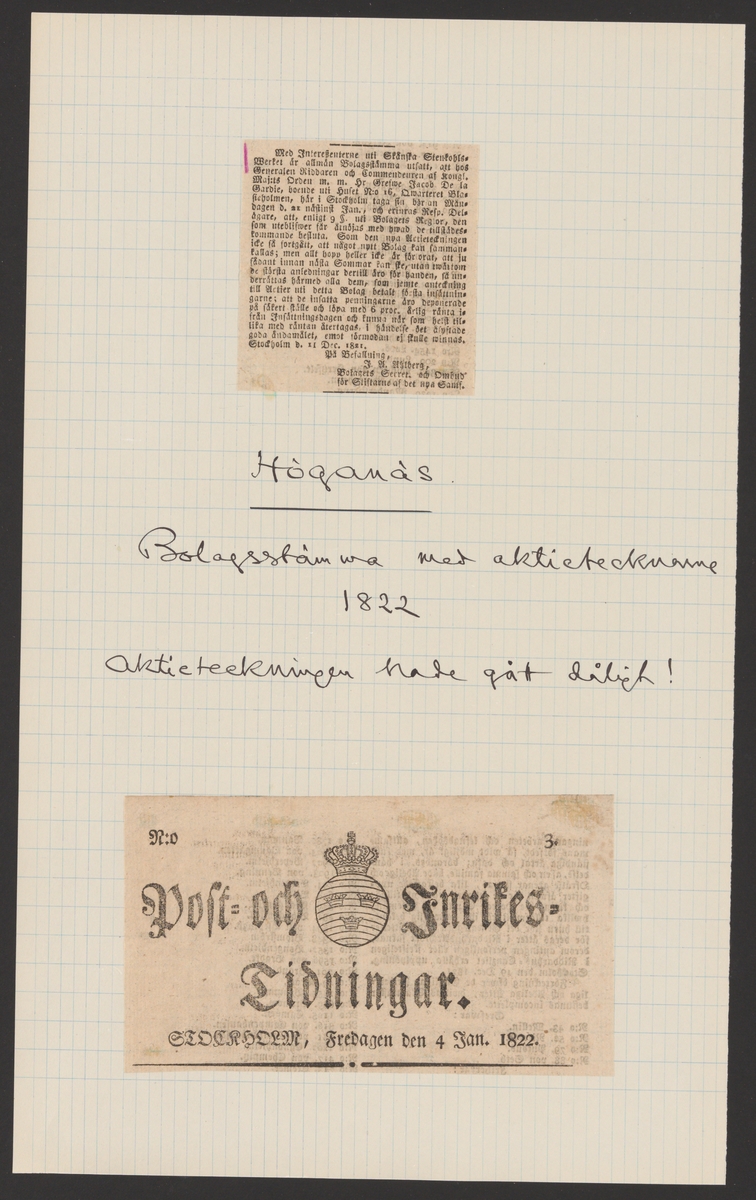 Med Intereßenterne uti Skånska Stenkohls-
Werket är allmän Bolagsstämma utsatt, att hos
Generalen Riddaren och Commendeuren af Kongl.
Maj:ts Orden m. m. Hr Grefwe Jacob De la
Gardie, boende uti Huset N:o 16, Qwarteret Bla-
sieholmen, här i Stockholm taga sin början Mån-
dagen d. 21 nästinst. Jan., och erinras Resp. Del-
ägare, att, enligt 9 §. uti Bolagets Reglor, den
som uteblifwer får åtnöjas med hwad de tillstädes-
kommande besluta. Som den nya Actieteckningen
icke så fortgått, att något nytt Bolag kan samman-
kallas; men allt hopp heller icke är förlorat, att ju
sådant innan nästa Sommar kan ske, utan twärtom
de största anledningar dertill äro för handen, så un-
derrättas härmed alla dem, som jemte anteckning
till Actier uti detta Bolag betalt första insättnin-
garne; att de insatta penningarne äro deponerade
på säkert ställe och löpa med 6 proc. årlig ränta i-
från Insättningsdagen och kunna när som helst til-
lika med räntan återtagas, i händelse det åsyftade
goda ändamålet, emot förmodan ej skulle winnas.
Stockholm d. 11 Dec. 1821.
På Befallning,
J. A.
Bolagets Secret. och Ombud
för Stiftarne af det nya Samf.
Höganäs.
Bolagsstämma med aktietecknarne
1822
Aktieteckningen hade gått dåligt!
N:o 3.
Post- och Inrikes-
Tidningar.
STOCKHOLM, Fredagen den 4 Jan. 1822.